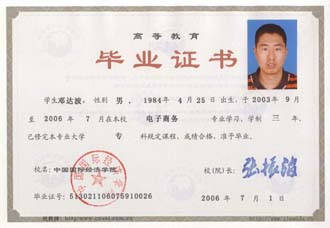 高等教育
毕业证书
学生邓达波，性别 男，1984年 4月25日出生，于2003年 9月
至 2006年 7月在本校 电子商务 专业学习，学制 三 年，
已修完本专业大学 专 科规定课程，成绩合格，准予毕业。
校名：中国国际经济学院 校(院)长：张振波
毕业证号：513021106075910026 2006年 7月 1日